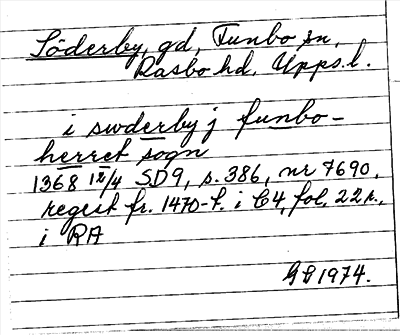 Söderby, gd, Funbo sn,
Rasbo hd, Upps. l.
i swderby j funbo-
herret sogn
1368 12/4 SD9, s. 386, nr 7690,
regest fr. 1470-t. i C4, fol. 22r.,
i RA
GB 1974.